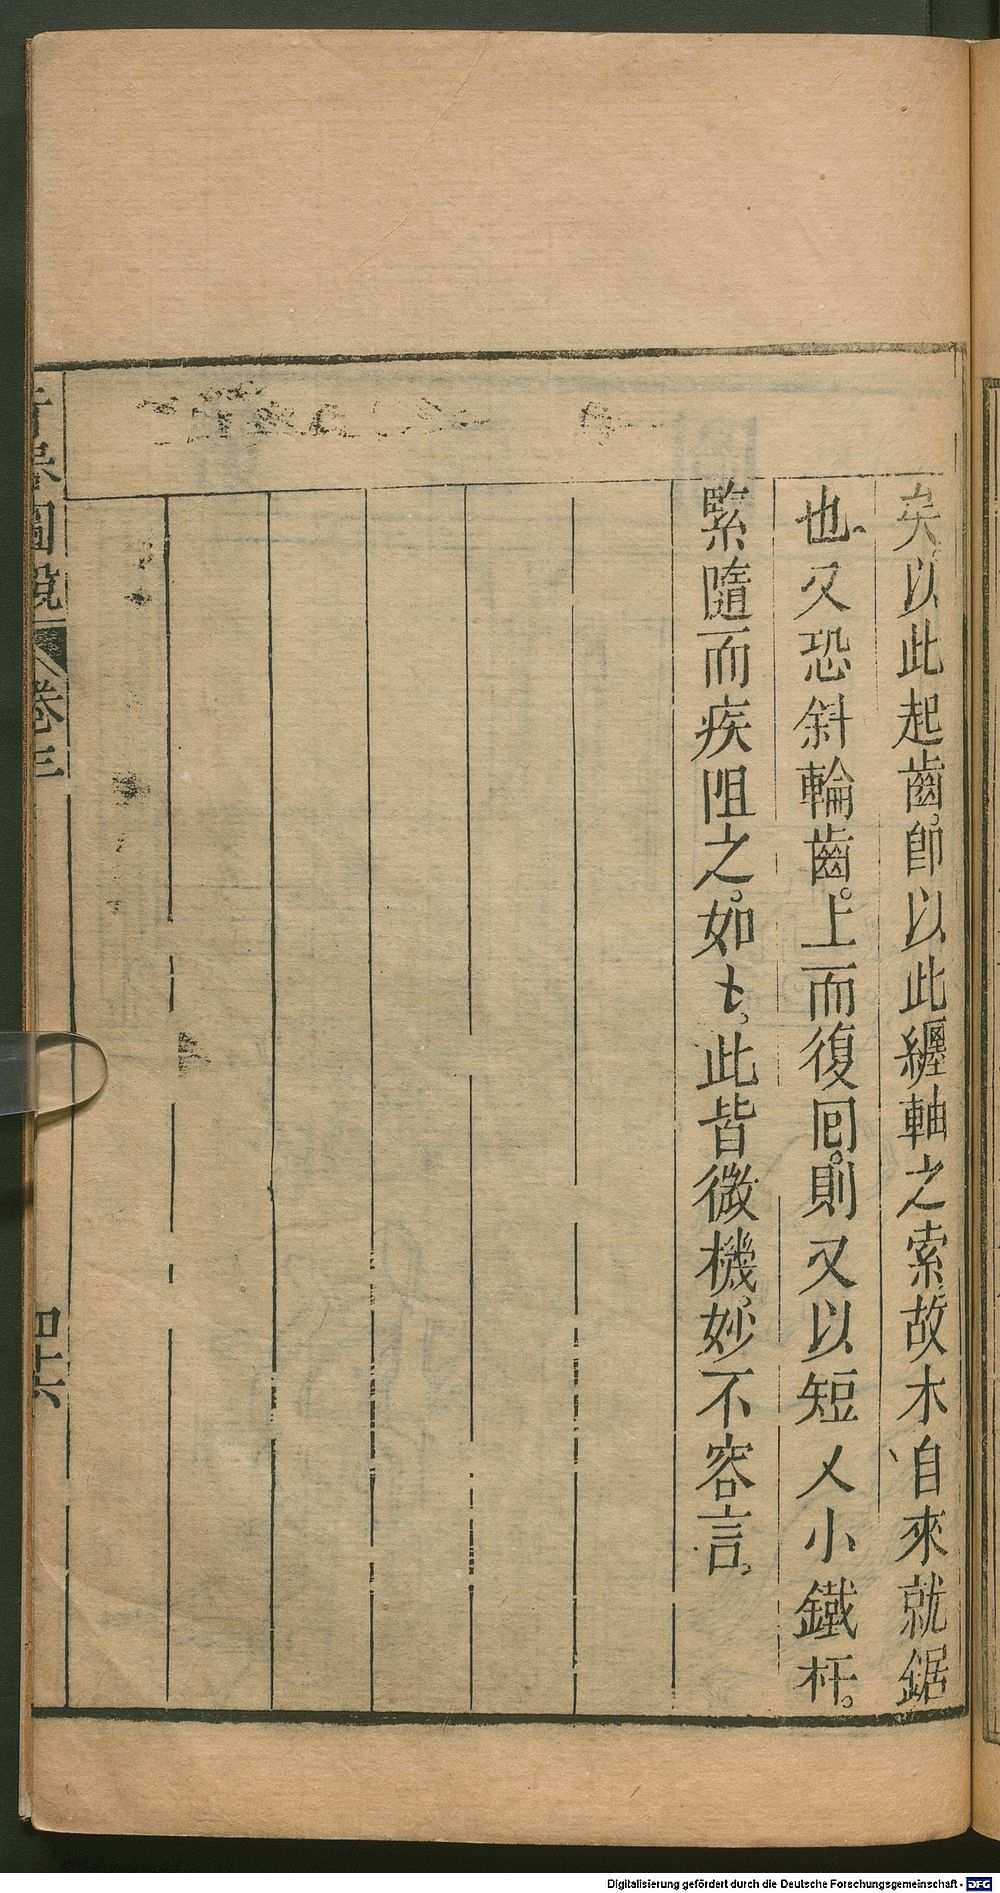 矣以此起齒。卽以此纏軸之索。故木自來就鋸
也。又恐斜輪齒。上而復囘。則又以短乂小鐵杆。
緊隨而疾阻之。如七。此皆微機。妙不容言。
奇器圖說 卷三 四十六
Digitalisierung gefördert durch die Deutsche Forschungsgemeinschaft - DFG